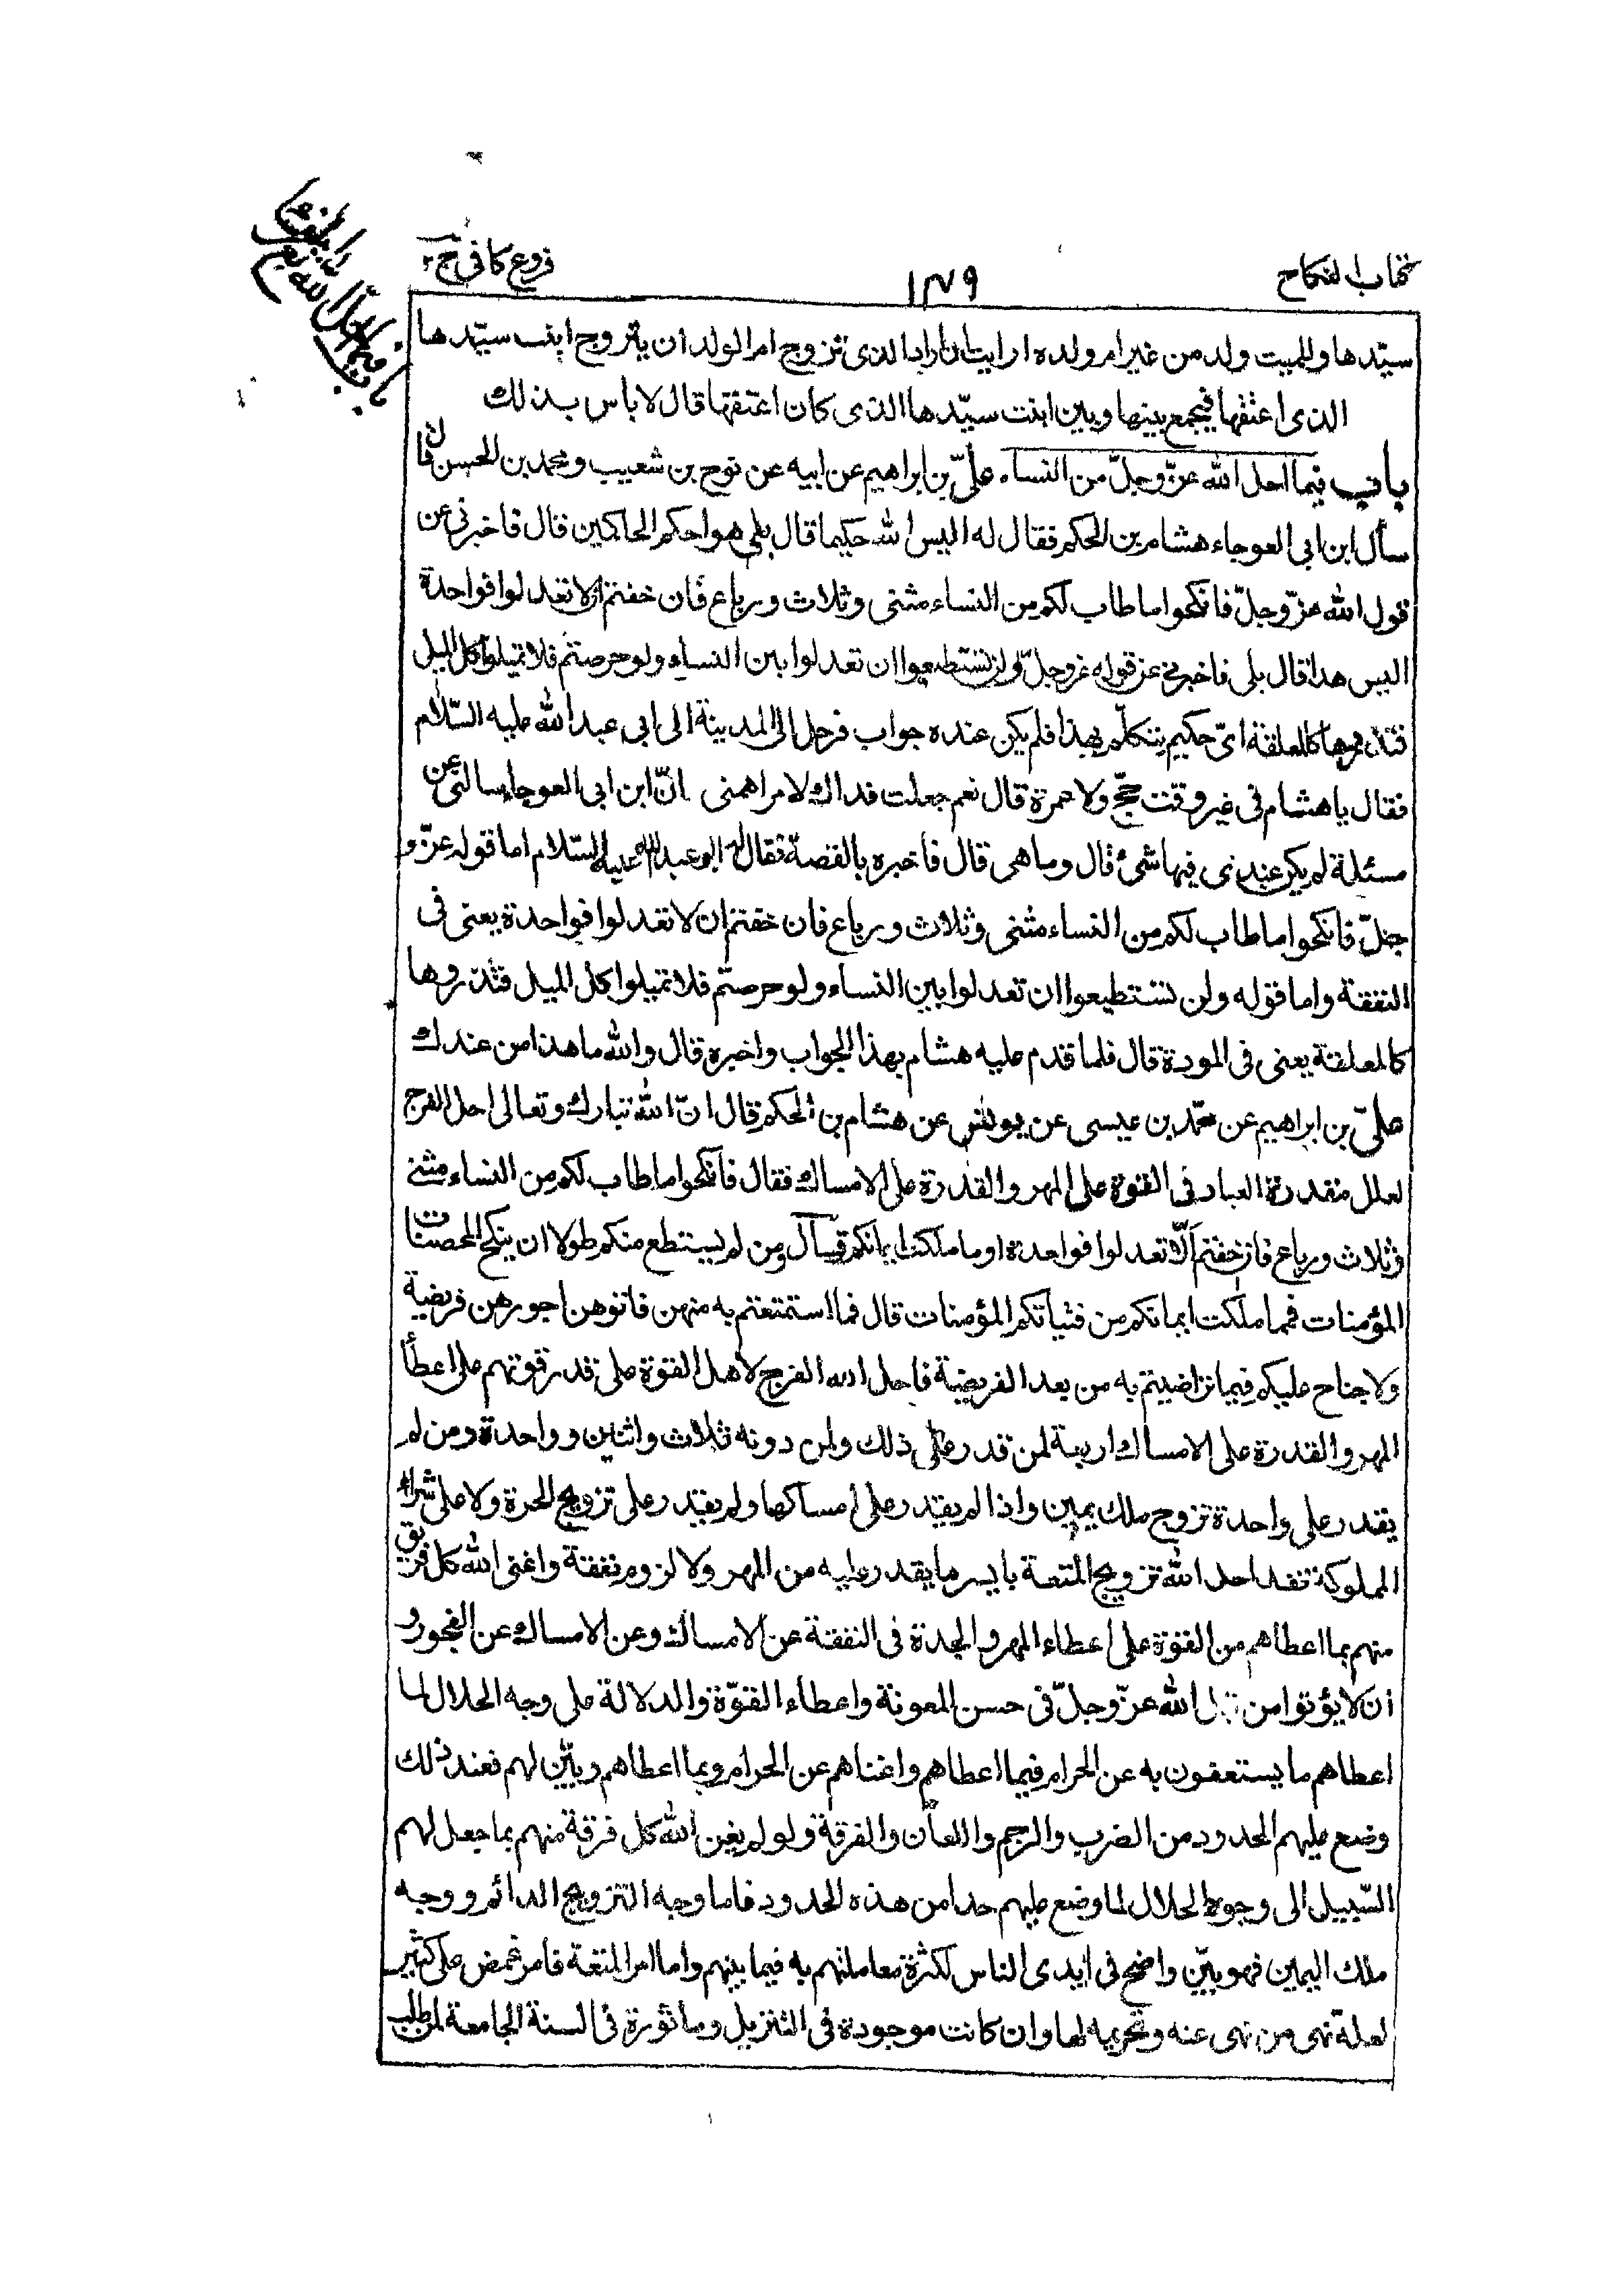 كتاب النكاح
١٧٩
فروع كافى ج ٢
باب فيما احل الله
سيّدها وللميت ولد من غير ام ولده ارايت ان اراد الذى تزوج ام الولد ان يتزوج ابنت سيّدها
الذى اعتقها فيجمع بينها وبين ابنت سيّدها الذى كان اعتقها قال لا باس بذلك
باب فيما احل الله عزّ وجلّ من النساء علىّ بن ابراهيم عن ابيه عن نوح بن شعيب ومحمد بن الحسن قال
سأل ابن ابى العوجاء هشام بن الحكم فقال له اليس الله حكيما قال بلى هو احكم الحاكمين قال فاخبرنى عن
قول الله عزّ وجلّ فانكحوا ما طاب لكم من النساء مثنى وثلاث ورباع فان خفتم ان لا تعدلوا فواحدة
اليس هذا قال بلى فاخبرنى عن قوله عز وجلّ ولن تستطيعوا ان تعدلوا بين النساء ولو حرصتم فلا تميلوا كل الميل
فتذروها كالمعلقة اىّ حكيم يتكلّم بهذا فلم يكن عنده جواب فرحل الى المدينة الى ابى عبد الله عليه السّلام
فقال يا هشام فى غير وقت حجّ ولا عمرة قال نعم جعلت فداك لامر اهمنى انّ ابن ابى العوجا سالنى عن
مسئلة لم يكن عندى فيها شئ قال وما هى قال فاخبره بالقصة فقال له ابو عبد الله عليه السّلام اما قوله عزّ و
جلّ فانكحوا ما طاب لكم من النساء مثنى وثلاث ورباع فان خفتم ان لا تعدلوا فواحدة يعنى فى
النفقة واما قوله ولن تستطيعوا ان تعدلوا بين النساء ولو حرصتم فلا تميلوا كل الميل فتذروها
كالمعلقة يعنى فى المودة قال فلما قدم عليه هشام بهذا الجواب واخبره قال والله ما هذا من عندك
علىّ بن ابراهيم عن محمّد بن عيسى عن يونس عن هشام بن الحكم قال انّ الله تبارك وتعالى احل الفرج
لعلل مقدرة العباد فى القوة على المهر والقدرة على الامساك فقال فانكحوا ما طاب لكم من النساء مثنى
وثلاث ورباع فان خفتم الّا تعدلوا فواحدة او ما ملكت ايمانكم وقال ومن لم يستطع منكم طولا ان ينكح المحصنات
المؤمنات فمما ملكت ايمانكم من فتياتكم المؤمنات قال فما استمتعتم به منهن فاتوهن اجورهن فريضة
ولا جناح عليكم فيما تراضيتم به من بعد الفريضة فاحل الله الفرج لاهل القوة على قدر قوتهم على اعطأ
المهر والقدرة على الامساك اربعة لمن قدر على ذلك ولمن دونه ثلاث واثنين وواحدة ومن لم
يقدر على واحدة تزوج ملك يمين واذا لم يقدر على امساكها ولم يقدر على تزويج الحرة ولا على شراء
المملوكة فقد احل الله تزويج المتعة بايسر ما يقدر عليه من المهر ولا لزوم نفقة واغنى الله كل فريق
منهم بما اعطاهم من القوة على اعطاء المهر والجدة فى النفقة عن الامساك وعن الامساك عن الفجور و
ان لا يؤتوا من قبل الله عزّ وجلّ فى حسن المعونة واعطاء القوّة والدلالة على وجه الحلال لما
اعطاهم ما يستعفون به عن الحرام فيما اعطاهم واغناهم عن الحرام وبما اعطاهم وبيّن لهم فعند ذلك
وضع عليهم الحدود من الضرب والرجم واللعان والفرقة ولو لم يغن الله كل فرقة منهم بما جعل لهم
السّبيل الى وجوه الحلال لما وضع عليهم حدا من هذه الحدود فاما وجه التزويج الدائم ووجه
ملك اليمين فهو بيّن واضح فى ايدى الناس لكثرة معاملتهم به فيما بينهم واما امر المتعة فامر غمض على كثير
لعلة نهى من نهى عنه وتحريمه لها وان كانت موجودة فى التنزيل ومأثورة فى السنة الجامعة لمن طلب